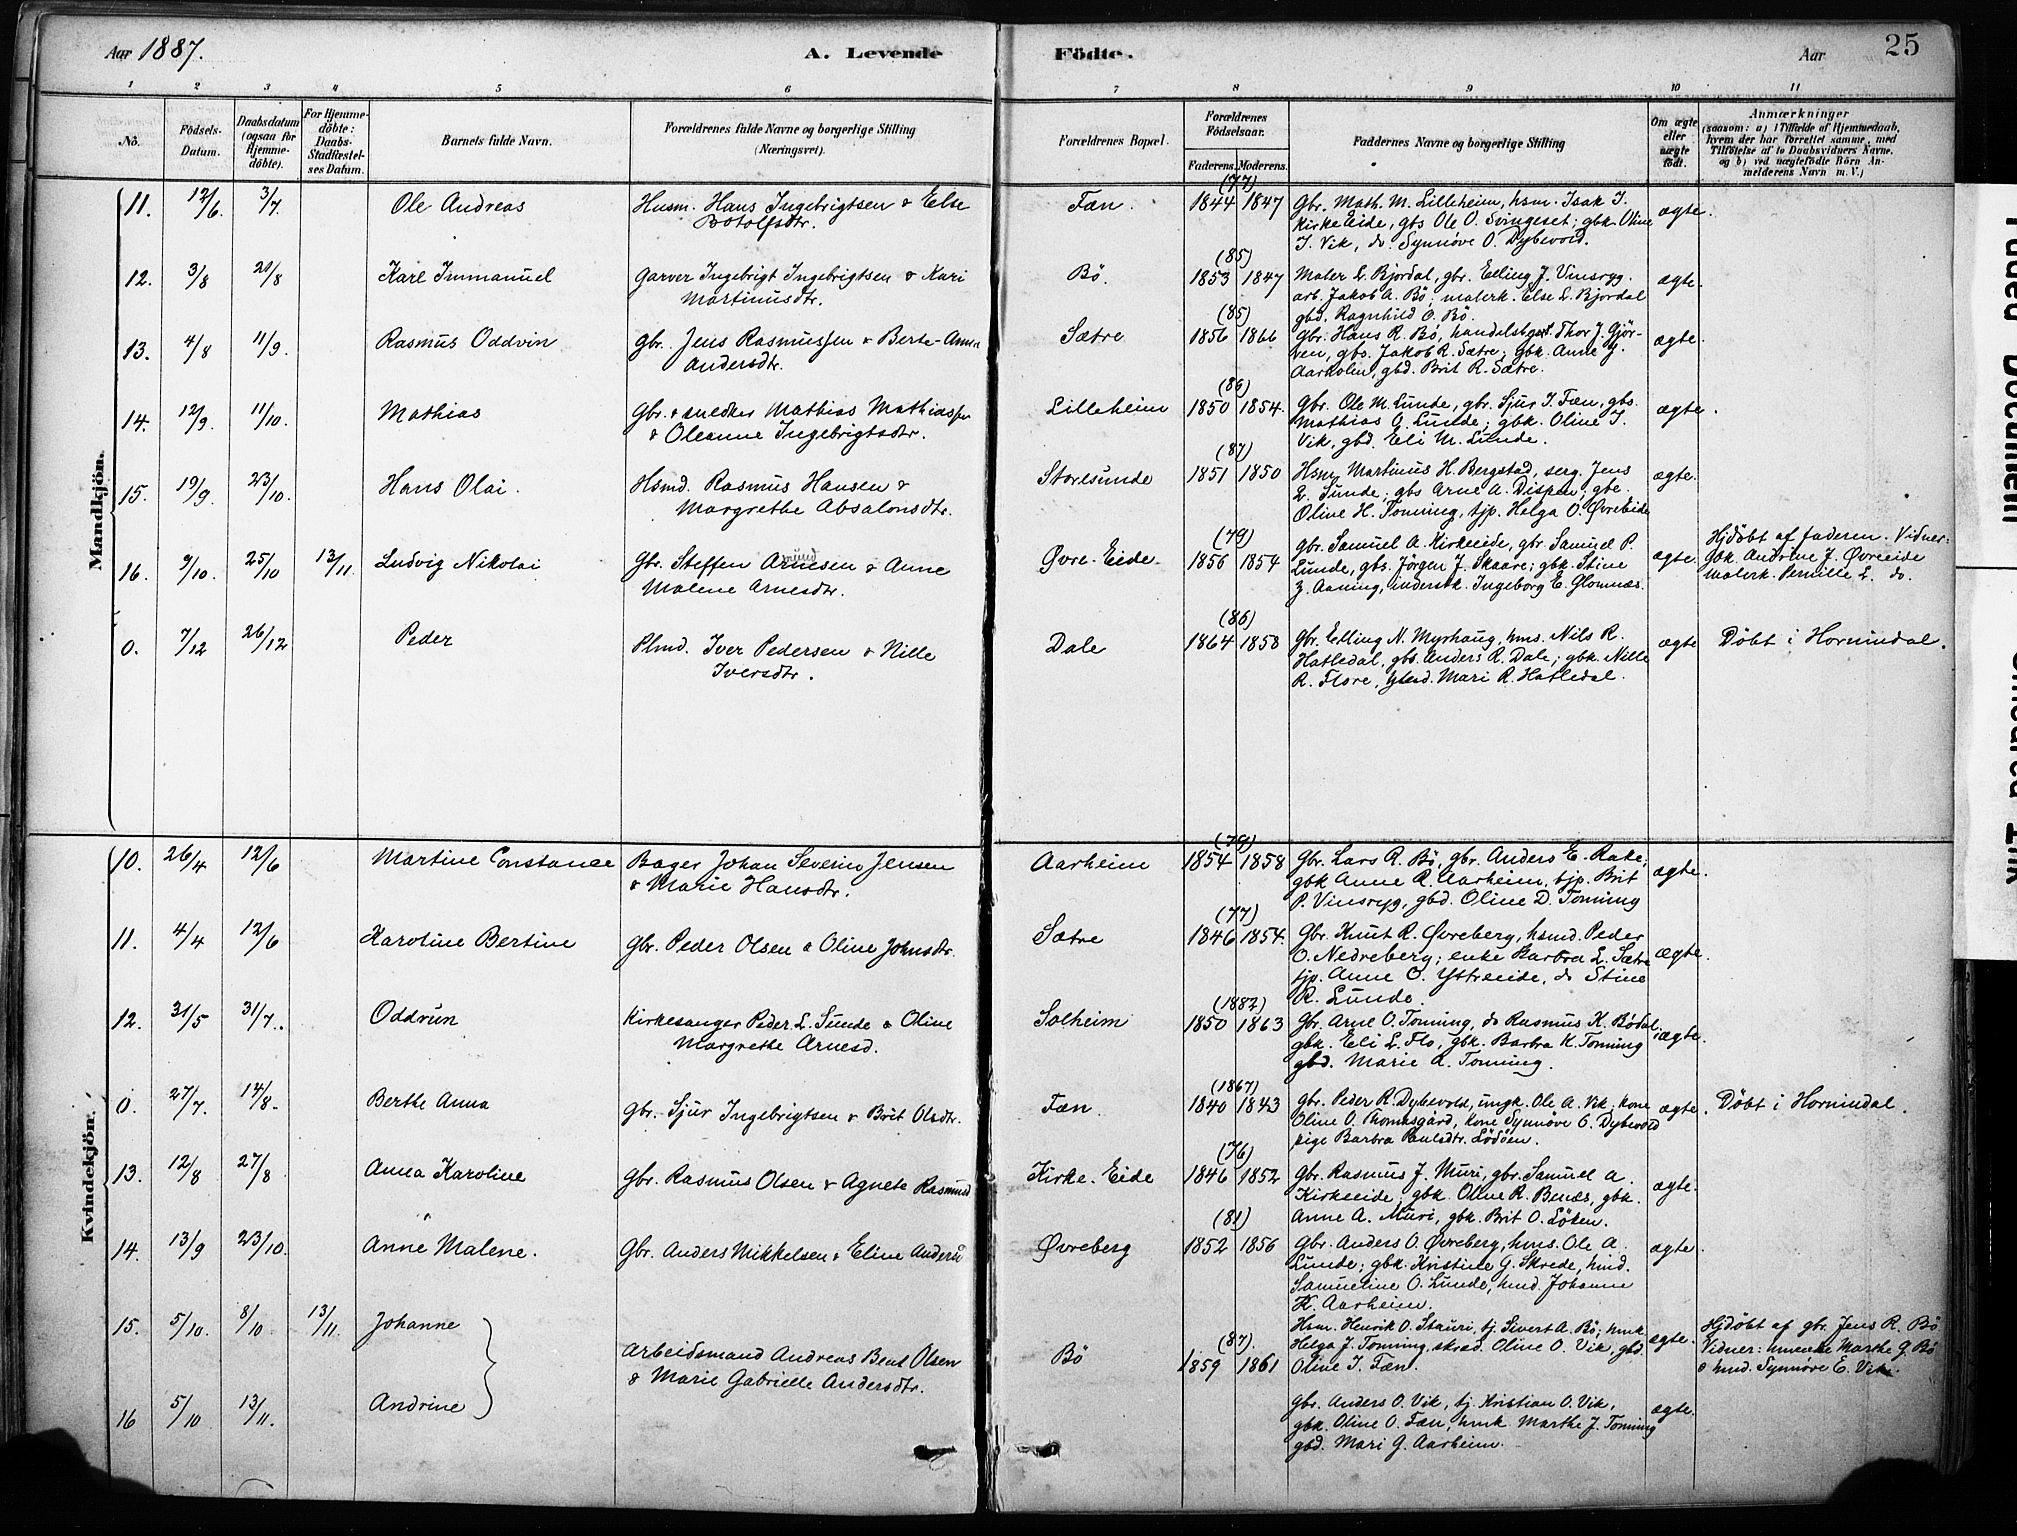 Aar 1887.
A. Levende Födte.
Aar
25
1 2 3 4 5 6 7 8 9 10 11
No.
Födsels-Datum.
Daabsdatum (ogsaa for Hjemme-döbte).
For Hjemme-döbte: Daabs-Stadfæstel-ses Datum.
Barnets fulde Navn.
Forældrenes fulde Navne og borgerlige Stilling (Næringsvei).
Forældrenes Bopæl.
Forældrenes Födselsaar.
Faderens. Moderens.
Faddernes Navne og borgerlige Stilling
Om ægte eller uægte födt.
Anmærkninger
(saasom: a) i Tilfælde af Hjemmedaab, hvem der har forrettet samme, med Tilföielse af to Daabsvidners Navne, og b) ved uægtefödte Börn An-melderens Navn m. V.)
Mandkjön.
11. 12/6. 3/7. Ole Andreas Husm. Hans Ingebrigtsen & Else Fæn. (77) 1844 1847 Gbr. Math. M. Lilleheim, hsm. Isak I. ægte.
Botolfsdtr. Kirke Eide, gbs Ole O. Svingeset; gbk. Oline
I. Vik, do. Synnøve O. Dybevold.
12. 3/8 20/8 Karl Immanuel Garver Ingebrigt Ingebrigtsen & Kari Bö. (85) 1853 1847 Maler L. Bjordal, gbr. Elling J. Vinsryg. ægte.
Martinusdtr. arb. Jakob A. Bö; malerk. Else L. Bjordal
gbd. Ragnhild O. Bö.
13. 4/8 11/9. Rasmus Oddvin gbr. Jens Rasmussen & Berte-Anna Sætre (85) 1856 1866 Gbr. Hans R. Bö, handelsbgest. Thor J. Gjör- ægte.
Andersdtr. ven, gbs. Jakob R. Sætre; gbk. Anne J.
Aarholm, gbd. Brit R. Sætre.
14. 12/9. 11/10. Mathias Gbr. & snedker Mathias Mathiassen Lilleheim (86) 1850 1854. Gbr. Ole M. Lunde, gbr. Sjur I. Fæn, gbs. ægte.
& Oleanne Ingebrigtsdtr. Mathias O. Lunde; gbk. Oline I.
Vik, gbd. Eli M. Lunde.
15. 19/9. 23/10. Hans Olai. Hsmd. Rasmus Hansen & Storesunde (87) 1851 1850 Hsm. Martinus H. Bergstad, serg. Jens ægte.
Margrethe Absalonsdtr. L. Sunde; gbs Arne A. Dispen; gbe.
Oline H. Tonning, tjp. Helga O. Øvreeide
16. 9/10. 25/10 13/11. Ludvig Nikolai Gbr. Steffen Arnesen & Anne Øvre-Eide. (79) 1856 1854 gbr. Samuel A. Kirkeeide, gbr Samuel P. ægte Hjdöbt af faderen. Vidner:
Malene Arnesdtr. Lunde, gbs. Jörgen J. Skaare; gbk. Stine gbk. Andrine J. Øvreeide
Z. Aaning, inderstk. Ingeborg E. Glomnæs. Malerk. Pernille L. do.
0. 7/12 26/12 Peder Plmd. Iver Pedersen & Nille Dale (86) 1864 1858 Gbr. Elling N. Myrhaug, hms. Nils R. ægte Döbt i Hornindal.
Iversdtr. Hatledal, gbs. Anders R. Dale; gbk. Nille
R. Flore, Mari R. Hatledal.
Kvindekjön.
10. 26/4 12/6 Martine Constance Bager Johan Severin Jensen Aarheim (79) 1854 1858 Gbr. Lars R. Bö, gbr. Anders E. Rake, ægte.
& Marie Hansdtr. gbk Anne R. Aarheim, tjp. Brit
P. Vinsryg, gbd. Oline D. Tonning
11. 4/4 12/6 Karoline Bertine Gbr. Peder Olsen & Oline Johnsdtr. Sætre (77) 1846 1854. Gbr. Knut R. Øvreberg, hsmd. Peder ægte.
O. Nedreberg; enke Barbra L. Sætre
tjp. Anne O. Ytreeide, do Stine
R. Lunde.
12. 31/5 31/7. Oddrun Kirkesanger Peder L. Sunde & Oline Solheim (1882) 1850 1863 Gbr. Arne O. Tonning, do Rasmus K. Bödal, ægte.
Margrethe Arnesd. gbk. Eli L. Flo, gbk. Barbra K. Tonning
gbd. Marie A. Tonning.
0. 27/7. 14/8. Berthe Anna gbr. Sjur Ingebrigtsen & Brit Olsdtr. Fæn. (1867) 1840 1843 gbr. Peder R. Dybevold, ungk. Ole A. Vik, kone ægte. Döbt i Hornindal.
Oline O. Thomasgård, kone Synnöve O. Dybevold
pige Barbra Paulsdtr. Lödöen.
13. 12/8 27/8 Anna Karoline Gbr. Rasmus Olsen & Agnete Rasmusd Kirke-Eide (76) 1846 1852 Gbr. Rasmus J. Muri, gbr. Samuel A. ægte.
Kirkeeide; gbk. Oline R. Benæs, gbk.
Anne A. Muri, gbk. Brit O. Löken.
14. 13/9 23/10. Anne Malene. Gbr. Anders Mikkelsen & Eline Andersd Øvreberg (81) 1852 1856 Gbr. Anders O. Øvreberg, hms. Ole A. ægte.
Lunde; gbk. Kristine G. Skrede, hmd.
Samueline O. Lunde, hmd Johanne
K. Aarheim.
15. 5/10. 8/10 13/11. Johanne Arbeidsmand Andreas Bent Olsen Bö (87) 1859 1861 Hsm. Henrik O. Stauri, tj. Sivert A. Bö; hmk ægte. Hjdöbt af gbr. Jens R. Bö
& Marie Gabrielle Andersdtr. Helga J. Tonning, skrædd. Oline O. Vik, gbd. Vidner: Marthe G. Bö
Oline I. Fæn. & hmd. Synnöve E. Vik.
16 5/10 13/11. Andrine Gbr. Anders O. Vik, tj. Kristian O. Vik, ægte.
gbk. Oline O. Fæn, hmk Marthe J. Tonning
gbd. Mari G. Aarheim.